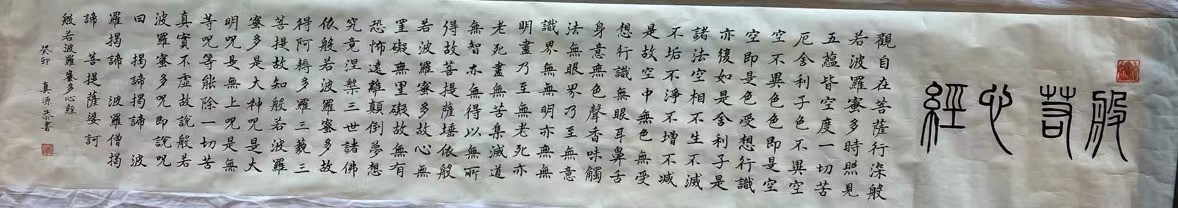 般若心經
觀自在菩薩行深般
若波羅蜜多時照見
五蘊皆空度一切苦
厄舍利子色不異空
空不異色色即是空
空即是色受想行識
亦復如是舍利子是
諸法空相不生不滅
不垢不淨不增不减
是故空中無色無受
想行識無眼耳鼻舌
身意無色聲香味觸
法無眼界乃至無意
識界無無明亦無無
明盡乃至無老死亦
老死盡無苦集滅道
無智亦無得以無所
得故菩提薩埵依般
若波羅蜜多故心無
罣礙無罣礙故無有
恐怖遠離顛倒夢想
究竟涅槃三世諸佛
依般若波羅蜜多故
得阿耨多羅三藐三
菩提故知般若波羅
蜜多是大神呪是大
明呪是無上呪是無
等呪等能除一切苦
真實不虛故說般若
波羅蜜多呪即說呪
曰 揭諦揭諦 波
羅揭諦 波羅僧揭
諦 菩提薩婆訶
般若波羅蜜多心經
癸卯 真源恭書